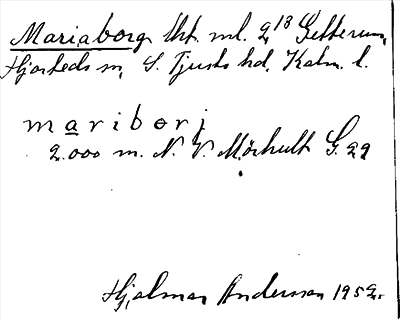 Mariaborg lht. ml. 2¹³ Getterum,
Hjorteds sn, S. Tjusts hd. Kalm. l.
mariborj
2.000 m. N. V. Mörhult G. 29
Hjalmar Andersson 1952.